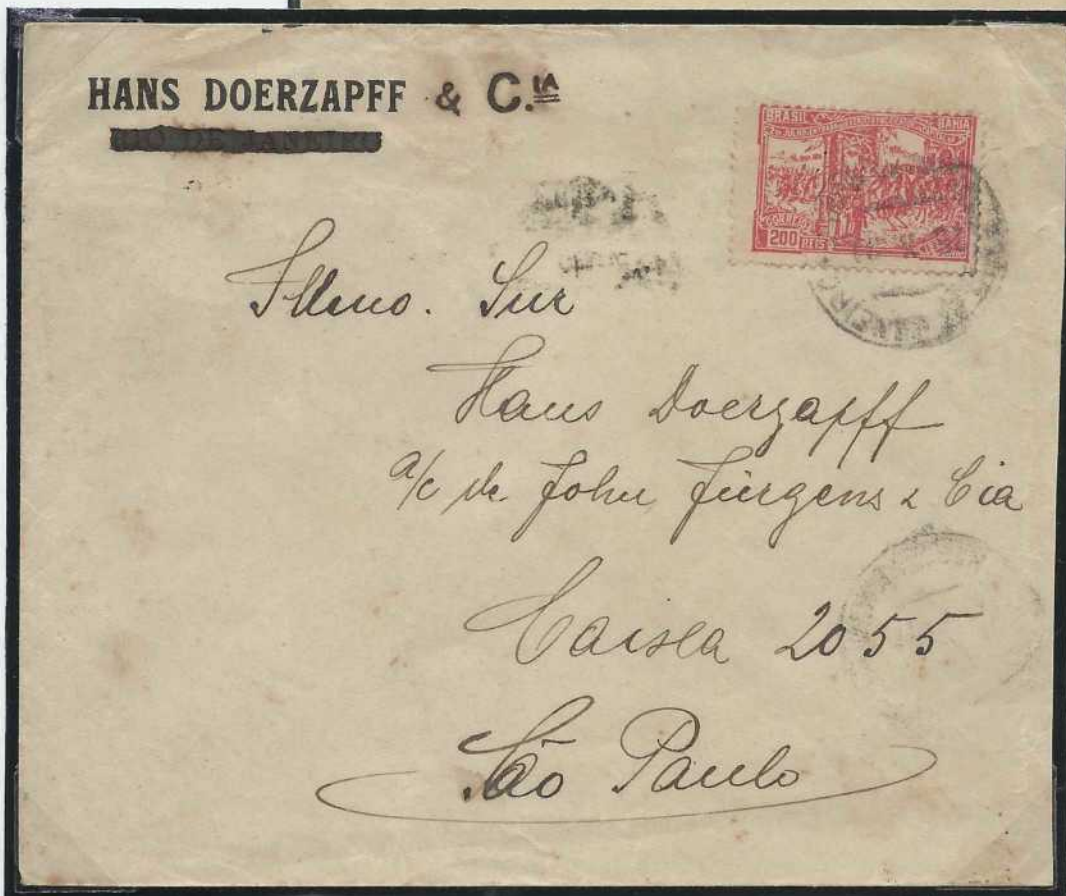 HANS DOERZAPFF & C.IA
BRASIL BAHIA
CORREIO
200 REIS
Illmo. Snr
Hans Doerzapff
a/c de John Jürgens & Cia
Caixa 2055
São Paulo